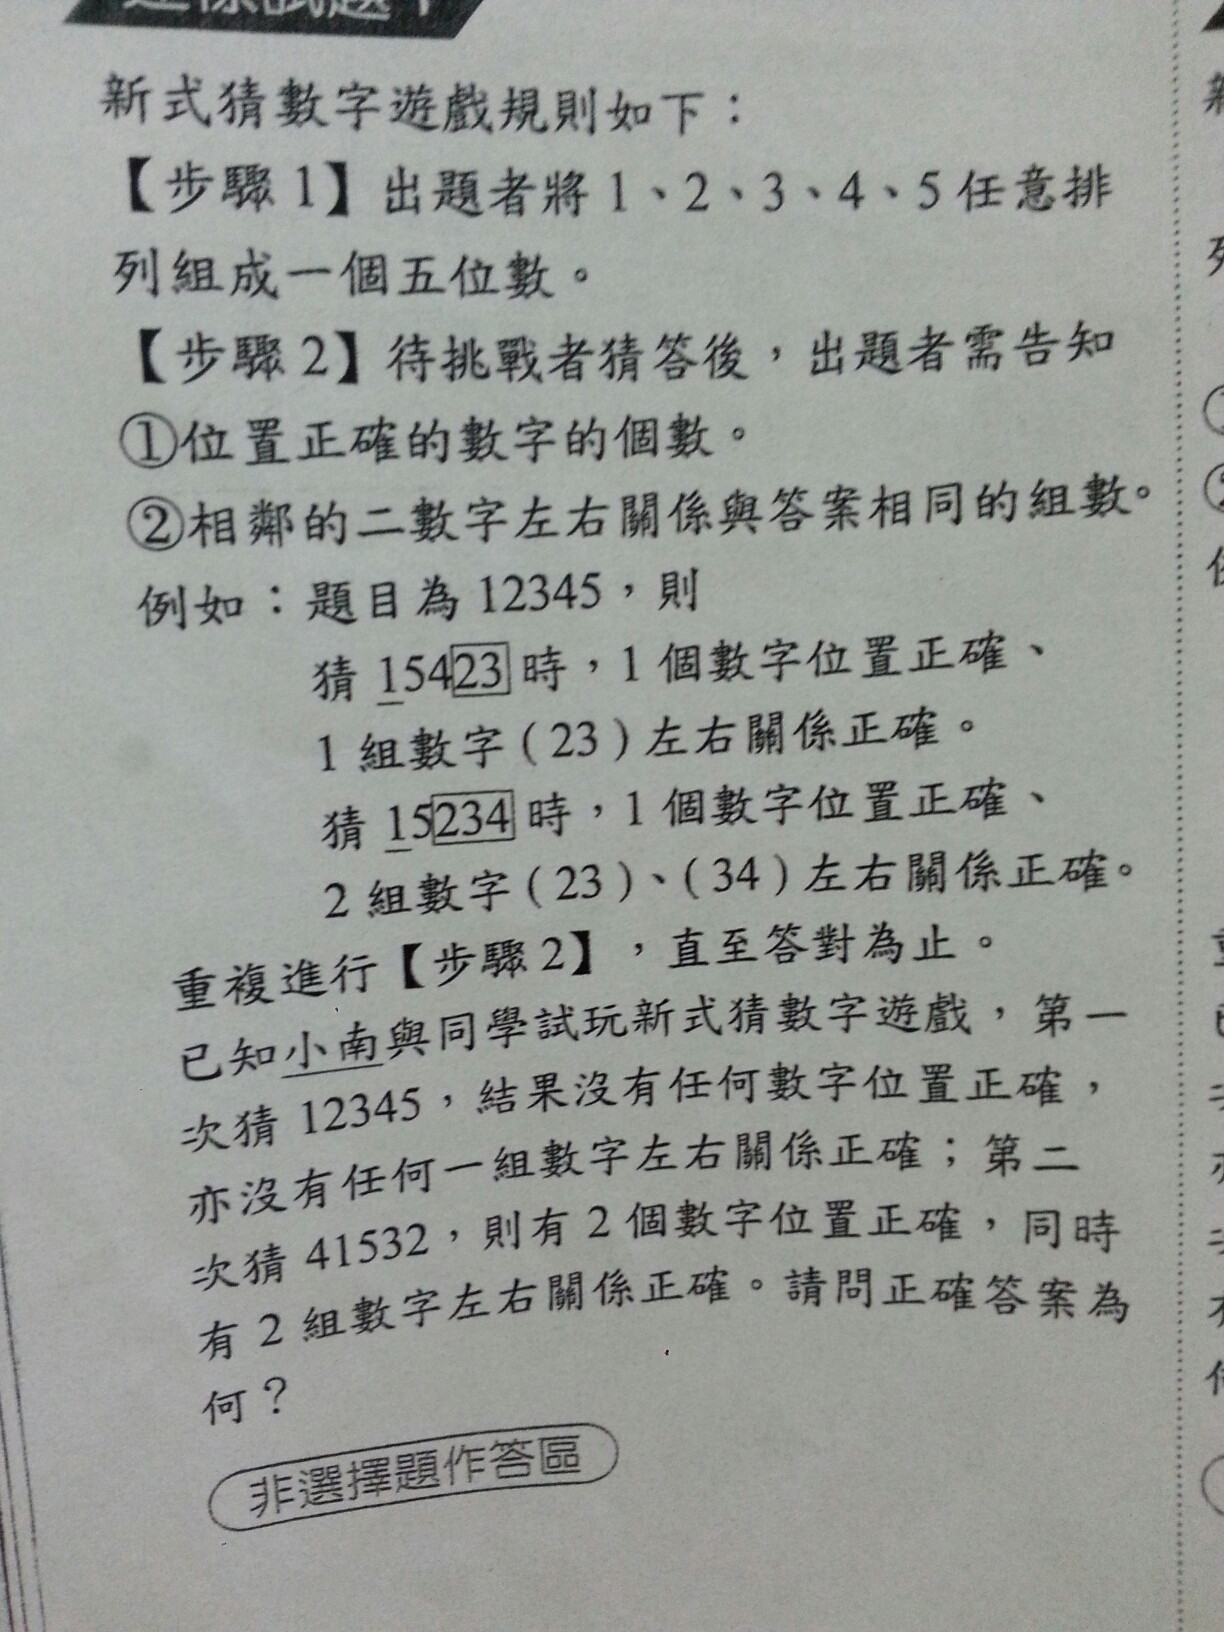 新式猜數字遊戲規則如下：
【步驟1】出題者將1、2、3、4、5任意排
列組成一個五位數。
【步驟2】待挑戰者猜答後，出題者需告知
①位置正確的數字的個數。
②相鄰的二數字左右關係與答案相同的組數。
例如：題目為12345，則
猜 15423 時，1個數字位置正確、
1組數字(23)左右關係正確。
猜 15234 時，1個數字位置正確、
2組數字(23)、(34)左右關係正確。
重複進行【步驟2】，直至答對為止。
已知小南與同學試玩新式猜數字遊戲，第一
次猜12345，結果沒有任何數字位置正確，
亦沒有任何一組數字左右關係正確；第二
次猜41532，則有2個數字位置正確，同時
有2組數字左右關係正確。請問正確答案為
何？
非選擇題作答區